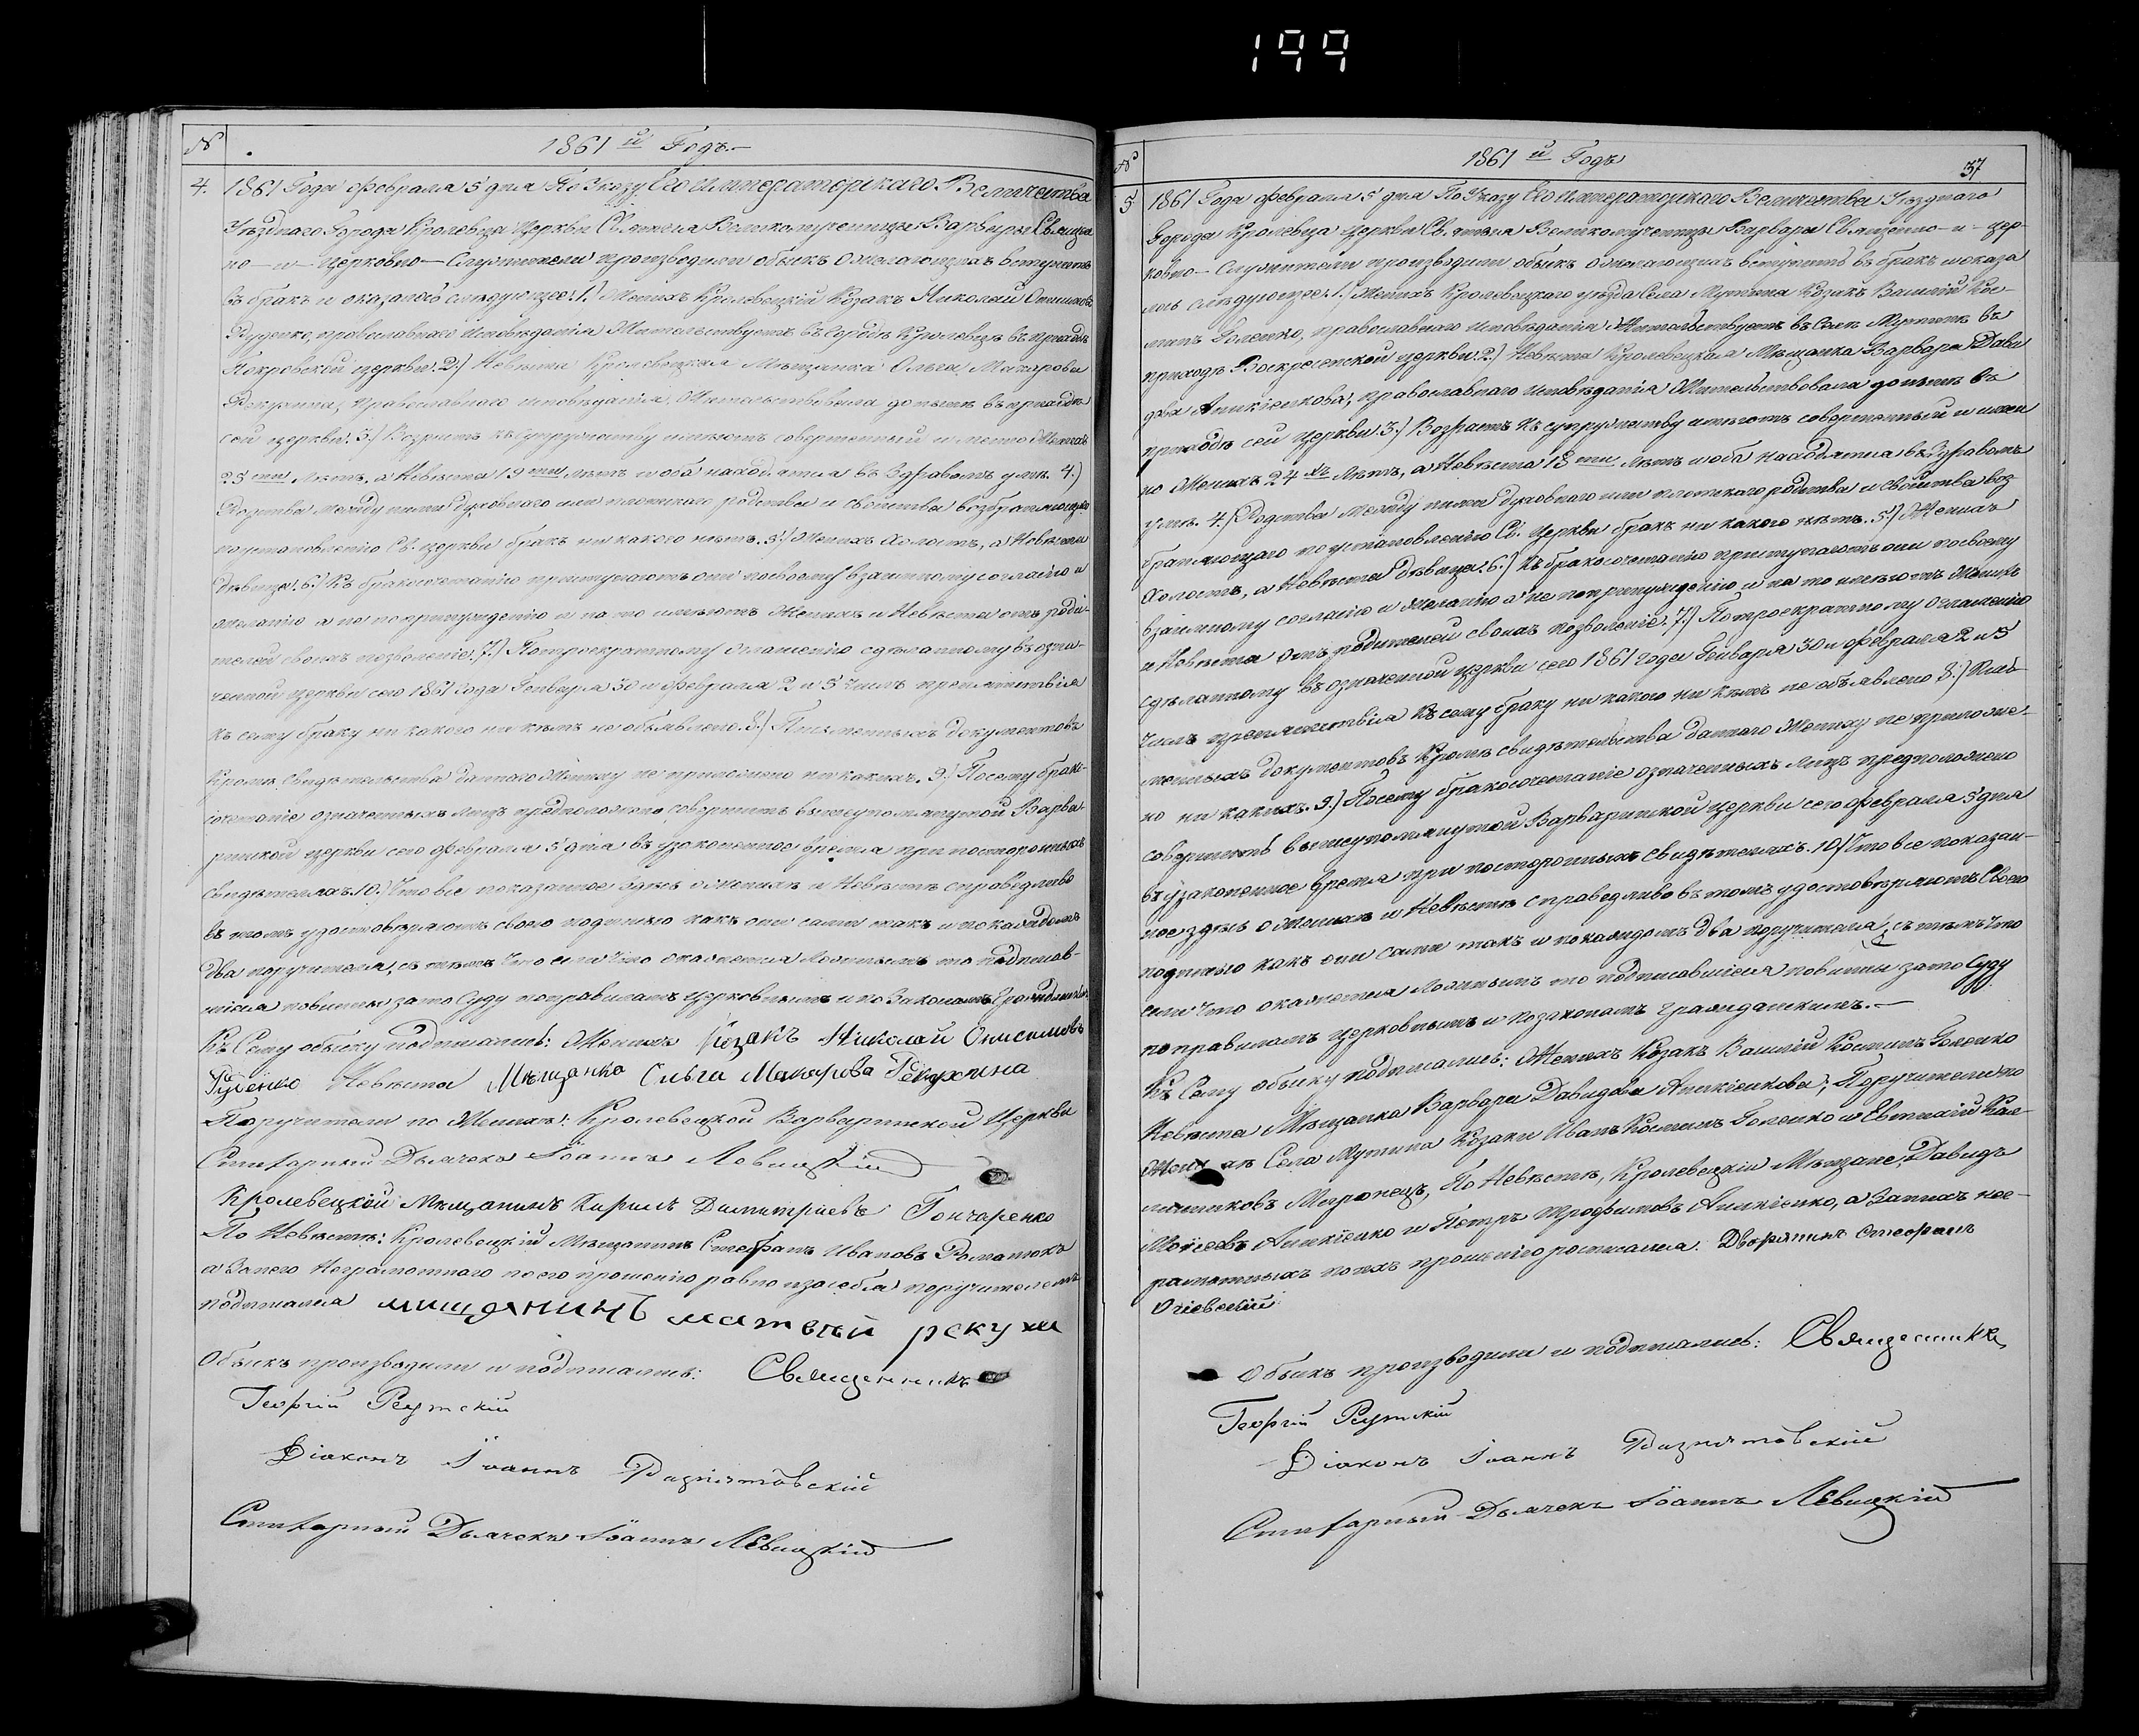 199
№
1861 й Годъ.
4.
1861 Года Февраля 5 дня По Указу Его Императорскаго Величества
Уѣзднаго Города Кролевца Церкви Святыя Великомученицы Варвары Священ
но – и – Церковно – Служители производили обыскъ о желающихъ вступить
въ бракъ и оказалось слѣдующее: 1.) Женихъ Кролевецкій Козакъ Николай Онисимовъ
Руденко, православнаго исповѣданія Жительствуетъ въ Городѣ Кролевцѣ въ приходѣ
Покровской церкви. 2.) Невѣста Кролевецкая Мѣщанка Ольга Макарова
Рекухина, Православнаго исповѣданія, Жительствовала донынѣ въ приходѣ
сей церкви. 3.) Возрастъ къ супружеству имѣютъ совершенный и именно Женихъ
25 ти лѣтъ, а Невѣста 19 ти лѣтъ и оба находятся въ здравомъ умѣ. 4.)
Родства между ними духовнаго или плотскаго родства и свойства возбраняющаго
по установленію Св. церкви бракъ ни какого нѣтъ. 5.) Женихъ Холостъ, а Невѣста
дѣвица. 6.) Къ бракосочетанію приступаютъ они по своему взаимному согласію и
желанію а не по принужденію и на то имѣютъ Женихъ и Невѣста отъ роди-
телей своихъ позволеніе. 7.) По троекратному оглашенію сдѣланному въ озна-
ченной церкви сего 1861 Года Генваря 30 и Февраля 2 и 5 числъ препятствія
къ сему браку ни какого ни кѣмъ не объявлено. 8.) Письменныхъ документовъ
Кромѣ свидѣтельства даннаго Жениху не приложено ни какихъ. 9.) Посему брако-
сочетаніе означенныхъ лицъ предположено совершить вышеупомянутой Варва-
ринской церкви сего Февраля 5 дня въ узаконенное время при постороннихъ
свидѣтеляхъ. 10.) Что все показанное здѣсь о женихѣ и Невѣстѣ справедливо
въ томъ удостовѣряютъ своею подписью какъ они сами такъ и по каждомъ
два поручителя, съ тѣмъ что если что окажется ложнымъ то подписав-
шіеся повинны за то Суду по правиламъ церковнымъ и по Законамъ Гражданскимъ.
Къ Сему обыску подписались: Женихъ Козакъ Николай Онисимовъ
Руденко Невѣста Мѣщанка Ольга Макарова Рекухина
Поручители по Женихѣ: Кролевецкой Варваринской Церкви
Стихарный Дьячекъ Іоаннъ Левицкій
Кролевецкій Мѣщанинъ Кирилъ Димитріевъ Гончаренко
По Невѣстѣ: Кролевецкій Мѣщанинъ Стефанъ Ивановъ Романюкъ
а за него неграмотнаго по его прошенію равно и за себя поручителемъ
подписался мищанинъ матвѣй рекуха
Обыскъ производили и подписались: Священникъ
Георгій Реутскій
Діаконъ Іоаннъ Разнятовскій
Стихарный Дьячекъ Іоаннъ Левицкій
№
1861 й Годъ
37
5
1861 Года Февраля 5 дня По Указу Его Императорскаго Величества Уѣзднаго
Города Кролевца церкви Святыя Великомученицы Варвары Священно – и – цер-
ковно – Служители производили обыскъ о желающихъ вступить въ бракъ и оказа
лось слѣдующее: 1.) Женихъ Кролевецкаго уѣзда Села Мутина Козакъ Василій Кос-
минъГоленко, православнаго исповѣданія Жительствуетъ въ Селѣ Мутинѣ въ
приходѣ Воскресенской церкви. 2.) Невѣста Кролевецкая Мѣщанка Варвара Дави
дова Аникіенкова, православнаго исповѣданія Жительствовала донынѣ въ
приходѣ сей церкви. 3.) Возрастъ къ супружеству имѣютъ совершенный и имен
но Женихъ 24 хъ лѣтъ, а Невѣста 18 ти лѣтъ и оба находятся въ здравомъ
умѣ. 4.) Родства между ними духовнаго или плотскаго родства и свойства воз-
браняющаго по установленію Св. церкви бракъ ни какого нѣтъ. 5.) Женихъ
Холостъ, а Невѣста дѣвица. 6.) Къ бракосочетанію приступаютъ они по своему
взаимному согласію и желанію а не по принужденію и на то имѣютъ Женихъ
и Невѣста отъ родителей своихъ позволеніе. 7.) По троекратному оглашенію
сдѣланному въ означенной церкви сего 1861 года Генваря 30 и Февраля 2 и 5
числъ препятствія къ сему браку ни какого ни кѣмъ не объявлено 8.) Пись-
менныхъ документовъ Кромѣ свидѣтельства даннаго Жениху не приложе-
но ни какихъ. 9.) Посему бракосочетаніе означенныхъ лицъ предположено
совершить вышеупомянутой Варваринской церкви сего Февраля 5 дня
въ узаконенное время при постороннихъ свидѣтеляхъ. 10.) Что все показан-
ное здѣсь о Женихѣ и Невѣстѣ справедливо въ томъ удостовѣряютъ своею
подписью какъ они сами такъ и по каждомъ два поручителя, съ тѣмъ что
если что окажется ложнымъ то подписавшіеся повинны за то Суду
по правиламъ церковнымъ и по законамъ гражданскимъ. –
Къ Сему обыску подписались: Женихъ Козакъ Василій Косминъ Голенко
Невѣста Мѣщанка Варвара Давидова Аникіенкова; Поручители по
Женихѣ Села Мутина Козаки Иванъ Косминъ Голенко и Евстафій
Миронецъ, По Невѣстѣ, Кролевецкіи Мѣщане, Давидъ
Моисеевъ Аникіенко и Петръ Трофимовъ Аникіенко, а за нихъ нег-
рамотныхъ по ихъ прошенію росписался. Дворянинъ Стефанъ
Огіевскій
Обыскъ производили и подписались: Священникъ
Георгій Реутскій
Діаконъ Іоаннъ Разнятовскій
Стихарный Дьячекъ Іоаннъ Левицкій